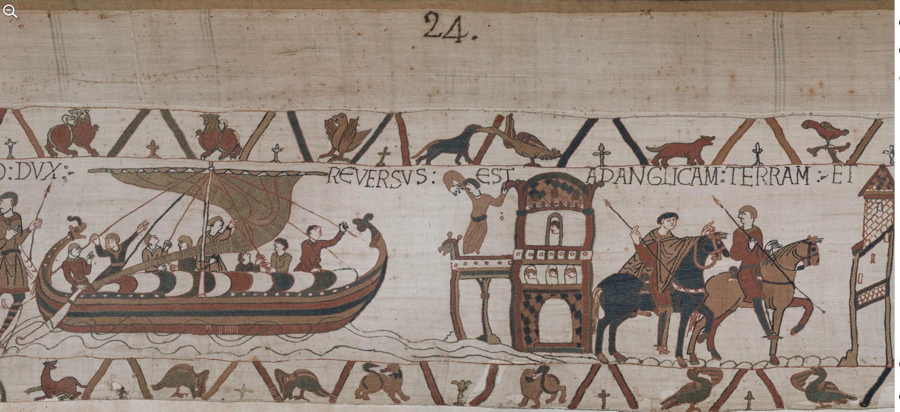 24.
O:DVX: REVERSVS: EST ADANGLICAM:TERRAM:- ET